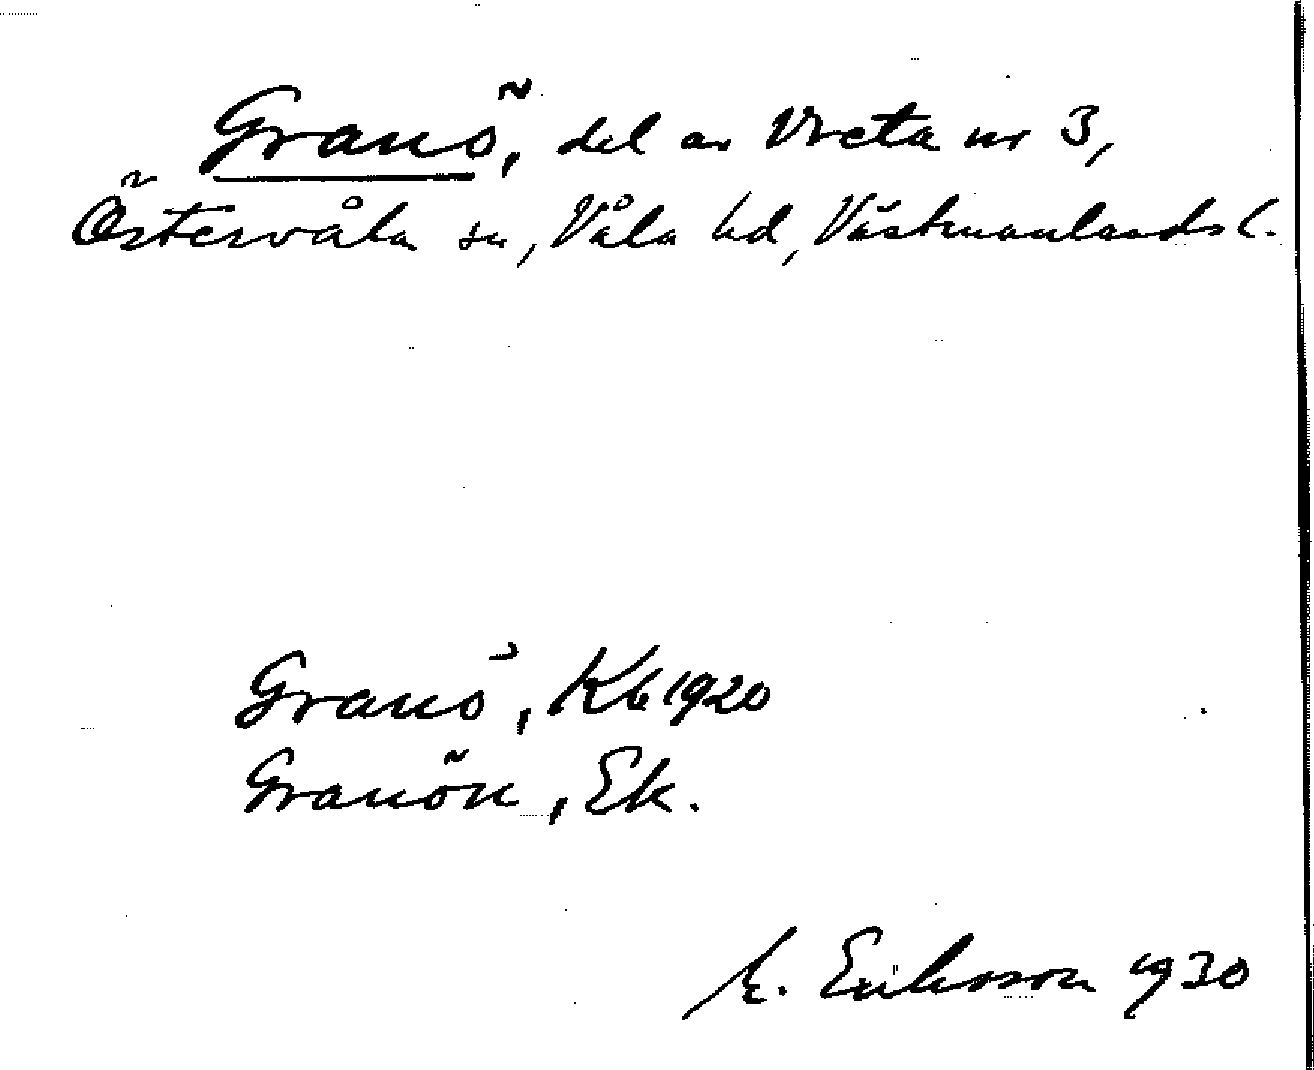 Granö, del av Vreta nr 3,
Östervåla sn, Våla hd, Västmanlands l.
Granö, Kb 1920
Granön, Ek.
Eriksson 1930